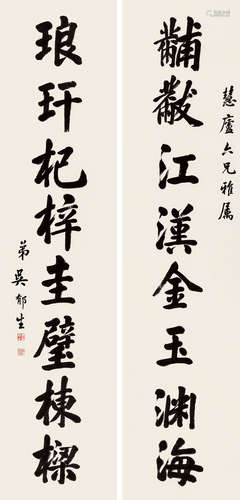 慧廬六兄雅屬
黼黻江漢金玉淵海
琅玕杞梓圭璧棟樑
弟吳郁生